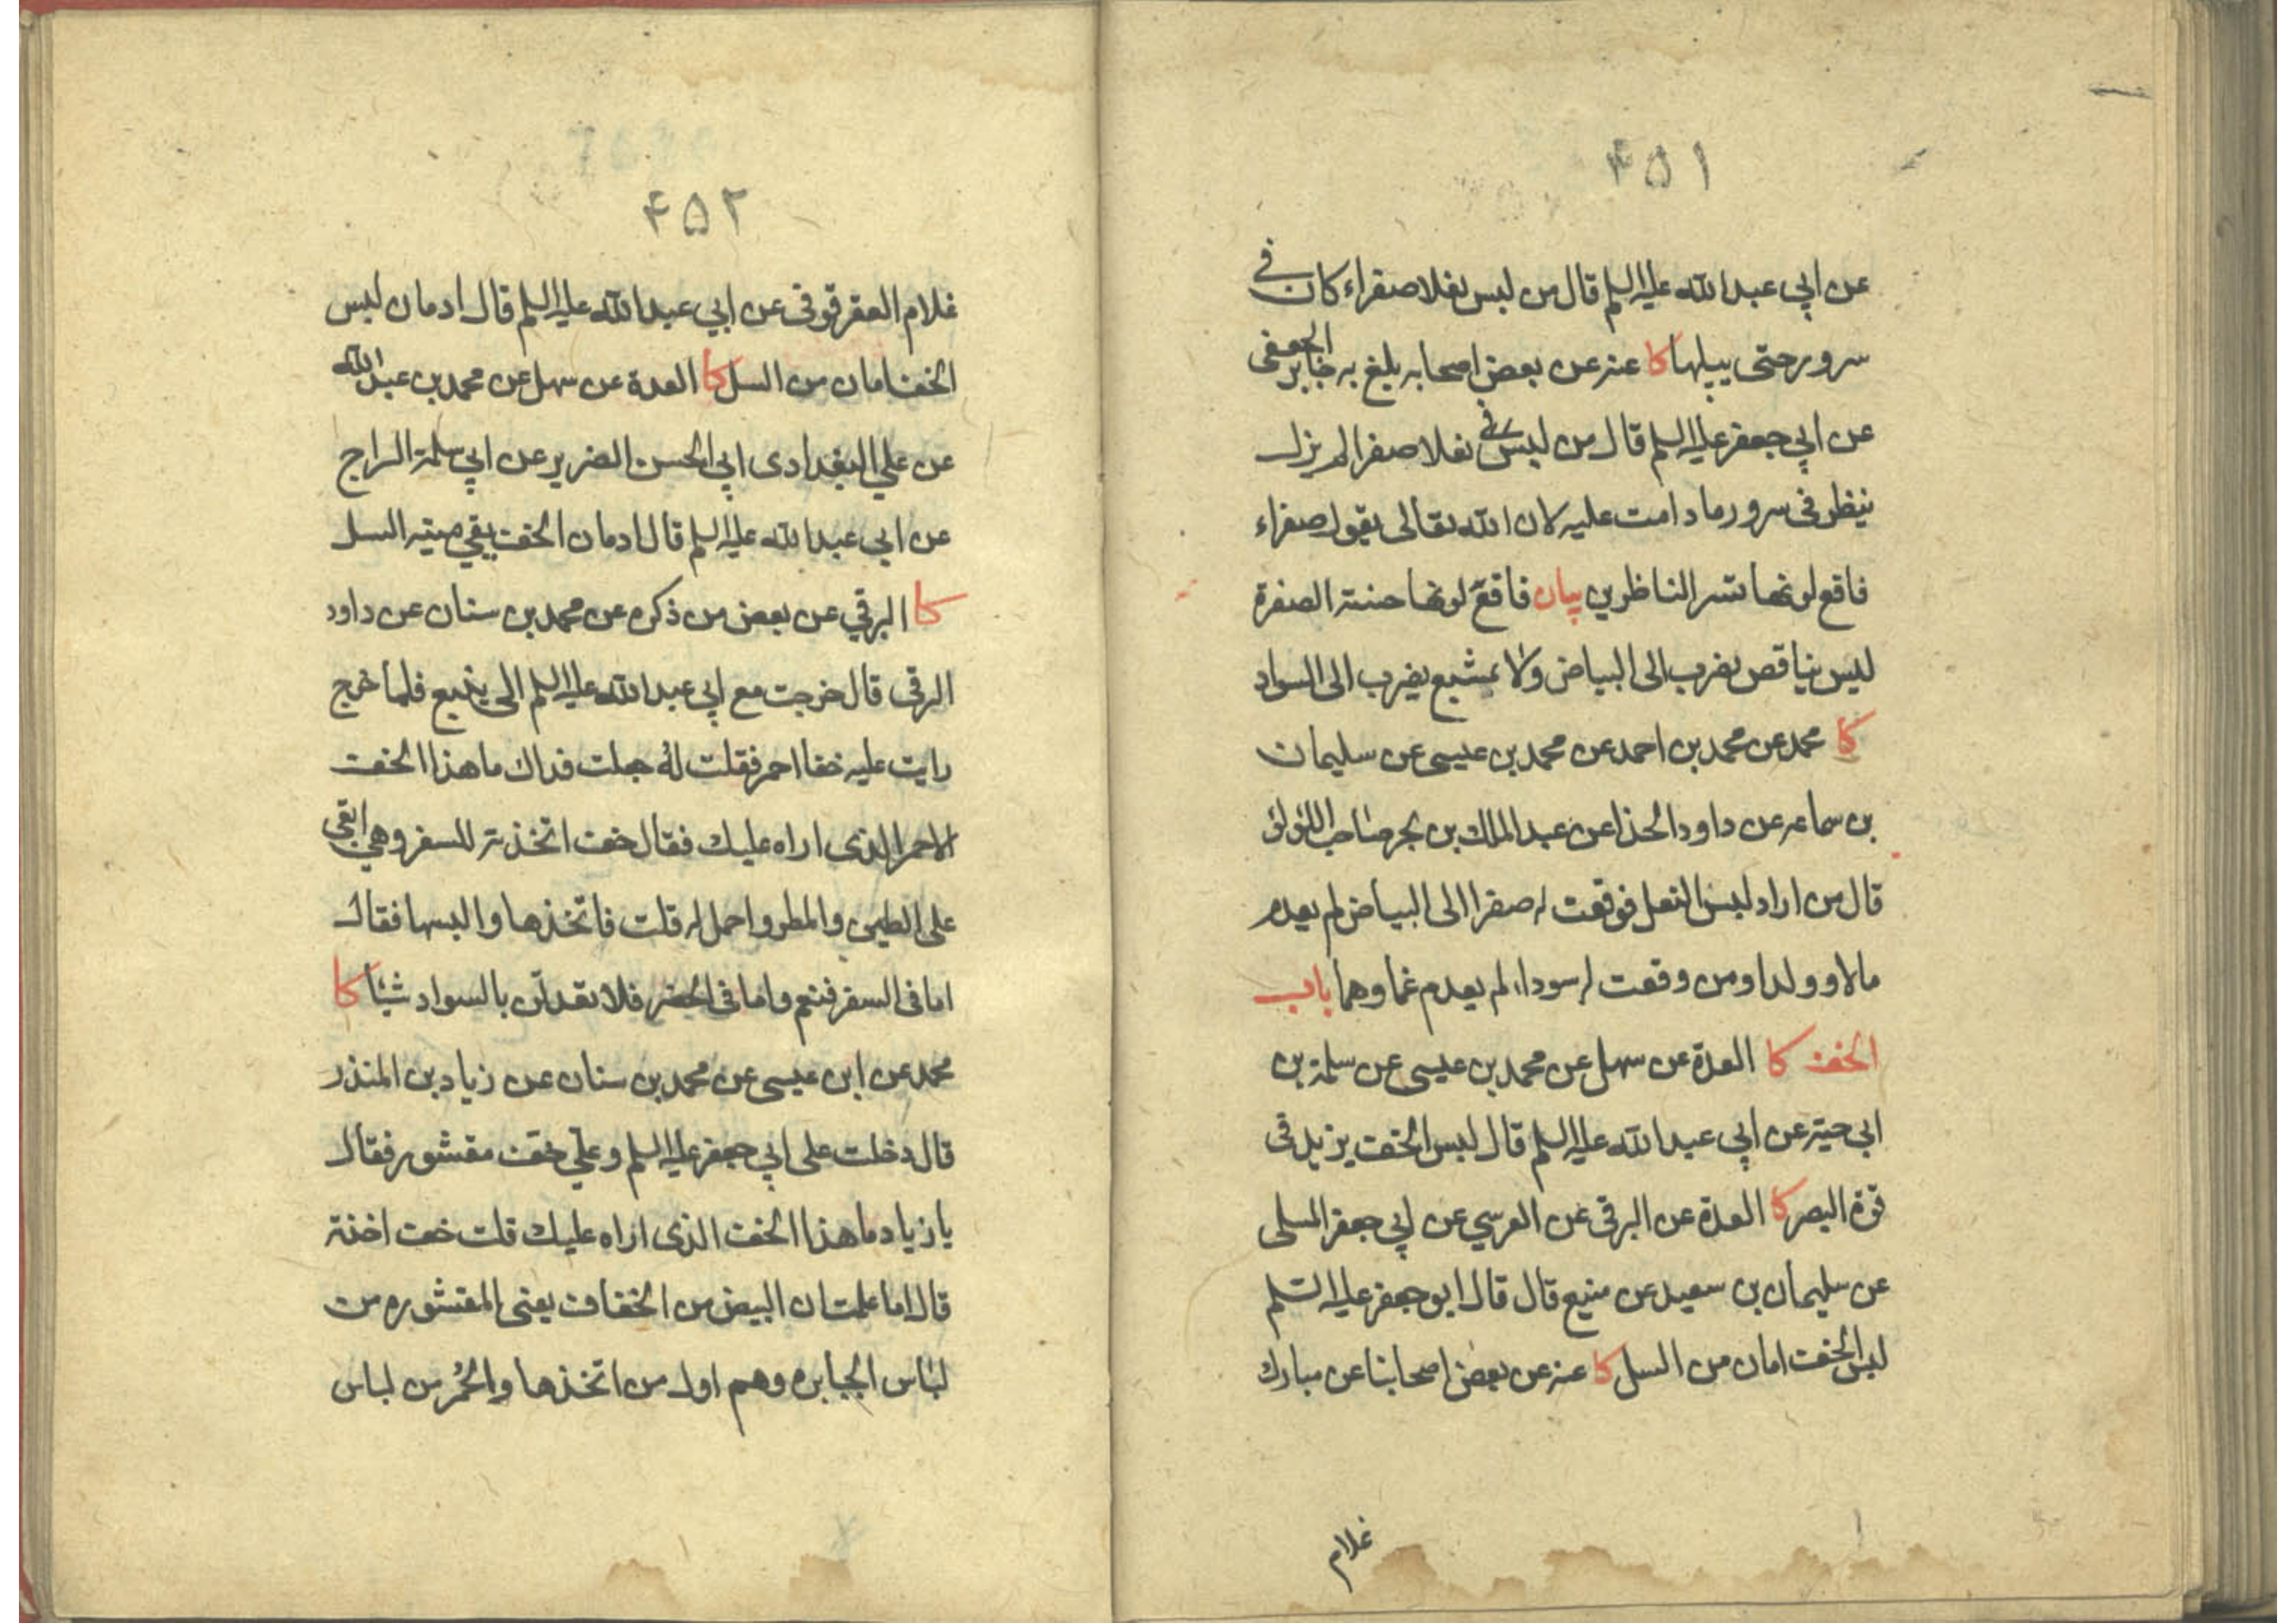 ۴۵۱
عن ابي عبد الله عليه السلم قال من لبس نعلا صفراء كان في
سرور حتى يبليها كا عنه عن بعض اصحابه بلغ به جابر الجعفى
عن ابي جعفر عليه السلم قال من لبس نعلا صفرا لم يزل
ينظر فى سرور ما دامت عليه لان الله تعالى يقول صفراء
فاقع لونها تسر الناظرين بيان فاقع لونها حسنة الصفرة
ليس بناقص يضرب الى البياض ولا بمشبع يضرب الى السواد
كا محمد عن محمد بن احمد عن محمد بن عيسى عن سليمان
بن سماعه عن داود الحذا عن عبد الملك بن بحر صاحب اللؤلؤ
قال من اراد لبس النعل فوقعت له صفرا الى البياض لم يعدم
مالا و ولدا ومن وقعت له سوداء لم يعدم غما وهما باب
الخف كا العدة عن سهل عن محمد بن عيسى عن سلمة بن
ابي حية عن ابي عبد الله عليه السلم قال لبس الخف يزيد فى
قوة البصر كا العدة عن البرقى عن العرسي عن ابي جعفر المسلى
عن سليمان بن سعيد عن منيع قال قال ابو جعفر عليه السلم
لبس الخف امان من السل كا عنه عن بعض اصحابنا عن مبارك
غلام
۴۵۲
غلام العقرقوفى عن ابي عبد الله عليه السلم قال ادمان لبس
الخف امان من السل كا العدة عن سهل عن محمد بن عبد الله
عن علي البغدادى ابي الحسن الضرير عن ابي سلمة السراج
عن ابي عبد الله عليه السلم قال ادمان الخف يقي ميتة السل
كا البرقي عن بعض من ذكره عن محمد بن سنان عن داود
الرقى قال خرجت مع ابي عبد الله عليه السلم الى ينبع فلما خرج
رايت عليه خفا احمر فقلت له جعلت فداك ما هذا الخف
الاحمر الذى اراه عليك فقال خف اتخذته للسفر وهي ابقى
على الطين والمطر واحمل له قلت فاتخذها والبسها فقال
اما فى السفر فنعم واما فى الحضر فلا تعدلن بالسواد شيئا كا
محمد عن ابن عيسى عن محمد بن سنان عن زياد بن المنذر
قال دخلت على ابي جعفر عليه السلم وعلي خف مقشور فقال
يا زياد ما هذا الخف الذى اراه عليك قلت خف اخذته
قال اما علمت ان البيض من الخفاف يعنى المقشوره من
لباس الجبابره وهم اول من اتخذها والحُمر من لباس